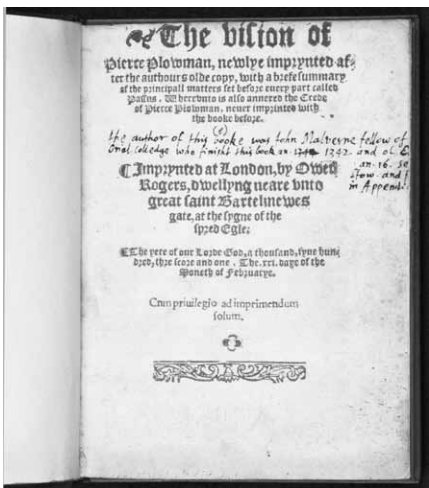 The vision of
Pierce Plowman, newlye imprynted af-
ter the authours olde copy, with a brefe summary
of the principall matters set before euery part called
Passus. Wherevnto is also annexed the Crede
of Pierce Plowman, neuer imprinted with
the booke before.
the author of this booke was John Malverne fellow of
Oriel colledge who finisht this book in 1342. and ob.
an. 16.
Stow. and
in Append
¶ Imprynted at London, by Owen
Rogers, dwellyng neare vnto
great saint Bartelmewes
gate, at the sygne of the
spred Egle.
¶ The yere of our Lorde God, a thousand, fyue hun-
dred, thre score and one. The .xxi. daye of the
Moneth of Februarye.
Cum priuilegio ad imprimendum
solum.